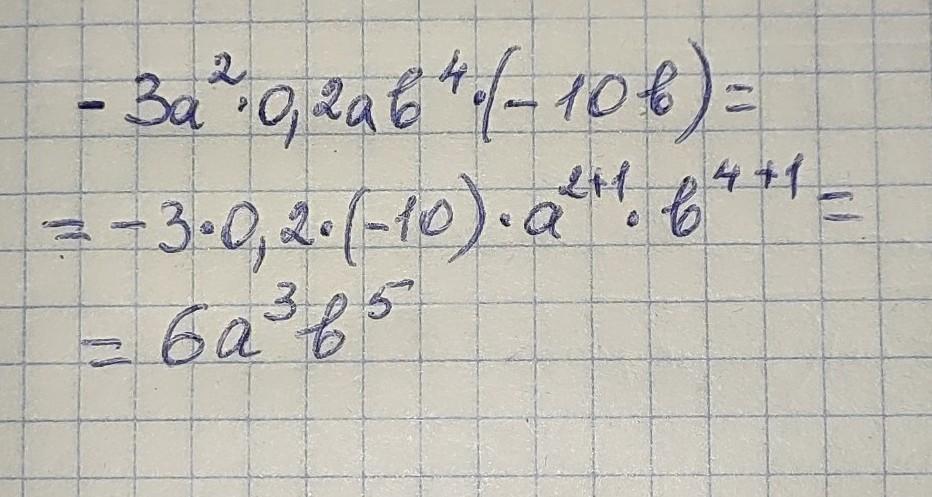 -3a²·0,2ab⁴·(-10b)=
=-3·0,2·(-10)·a²⁺¹·b⁴⁺¹=
=6a³b⁵